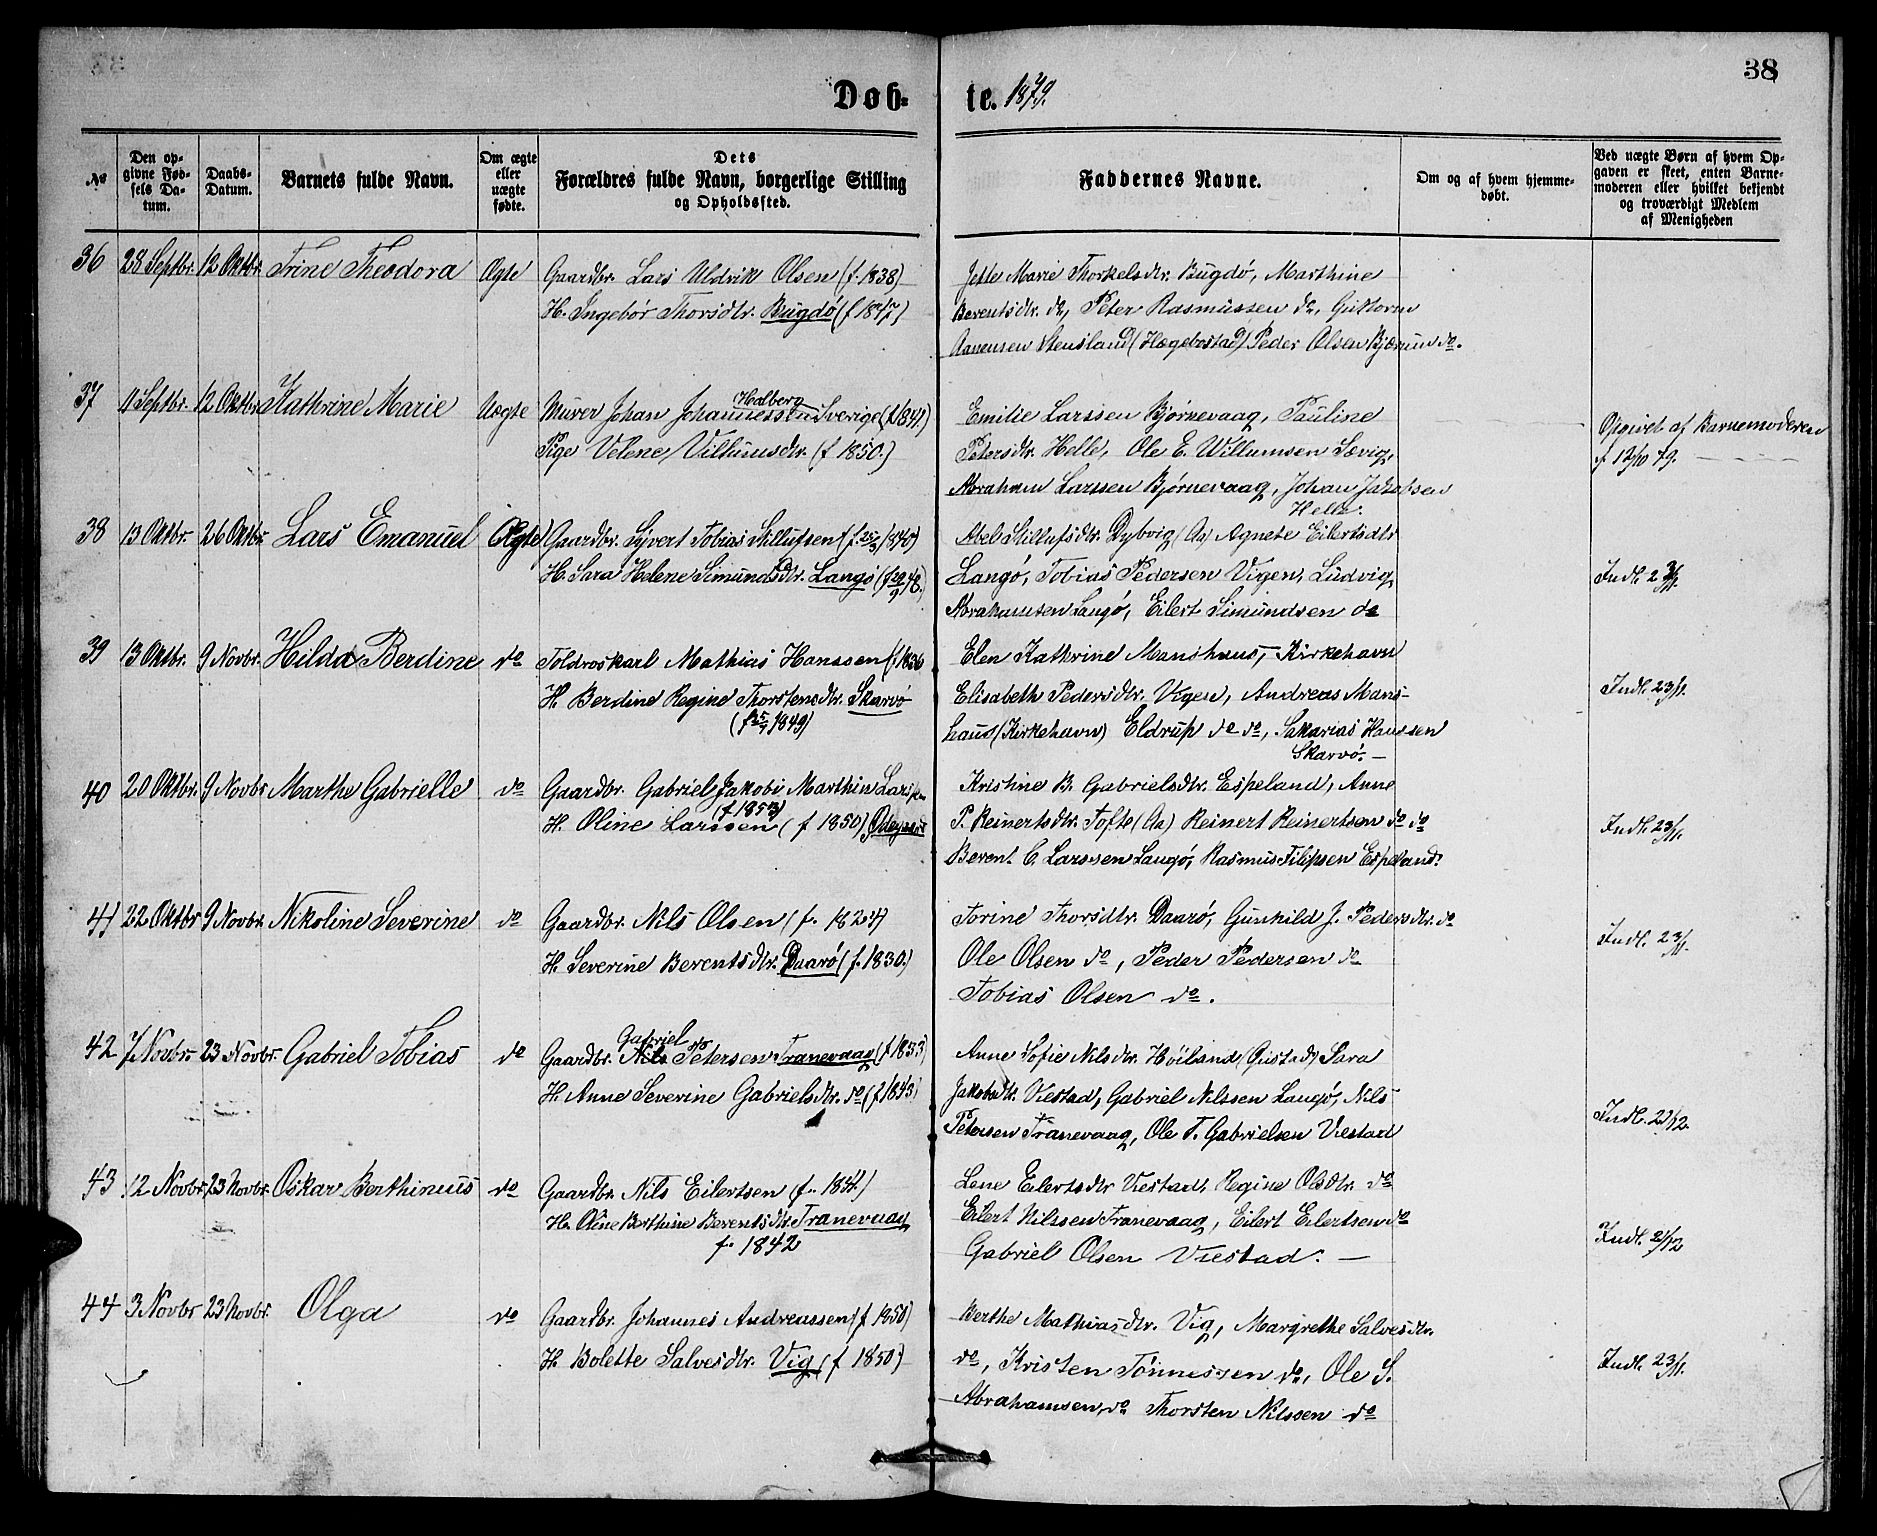 38
Døb-
te. 1879.
No
Den op-
givne Fød-
sels Da-
tum.
Daabs-
Datum.
Barnets fulde Navn.
Om ægte
eller
uægte
fødte.
Dets
Forældres fulde Navn, borgerlige Stilling
og Opholdssted.
Faddernes Navne.
Om og af hvem hjemme-
døbt.
Ved uægte Børn af hvem Op-
gaven er skeet, enten Barne-
moderen eller hvilket bekjendt
og troværdigt Medlem
af Menigheden
36 28 Septbr. 12 Oktbr. Trine Theodora Ægte Gaardbr. Lars Uldrik Olsen (f. 1838)
H. Ingebor Thorsdtr. Bugdø (f 1847)
Jette Marie Thorkelsdtr. Bugdø, Marthine
Berentsdtr. do, Peter Rasmussen do, Guttorm
Aanensen Stensland (Hægebostad) Peder Olsen Bjærum do.
37 11 Septbr. 12 Oktbr. Kathrine Marie Uægte Murer Johan Johannessen Sverige (f. 1841.)
Holberg
Pige Velene Villumsdtr. (f 1850.)
Emilie Larssen Bjørnevaag, Pauline
Petersdtr. Helle, Ole E. Willumsen Sævig,
Abraham Larssen Bjørnevaag, Johan Jakobsen
Helle.
Opgivet af Barnemoderen
f. 12/10 79.
38 13 Oktbr. 26 Oktbr. Lars Emanuel Ægte Gaardbr. Syvert Tobias Stillufsen (f. 25/3 1840)
H. Sara Helene Simundsdtr. Langø (f 29/9 48.)
Abel Stillufsdtr. Dybvig (Aa) Agnete Eilertsdtr
Langø, Tobias Pedersen Vigen, Ludvig
Abrahamsen Langø, Eilert Simundsen do
Indl. 23/11.
39 13 Oktbr. 9 Novbr. Hilda Berdine do Toldroskarl Mathias Hanssen (f 1836
H. Berdine Regine Thorstensdtr. Skarvø
Elen Kathrine Manshaus, Kirkehavn
Elisabeth Pedersdtr. Vigen, Andreas Mans-
haus (Kirkehavn) Eldrup do do, Sakarias Hanssen
Skarvø.
Indl. 23/11.
40 20 Oktbr. 9 Novbr Marthe Gabrielle do Gaardbr. Gabriel Jakobi Marthin Larssen
(f 1853)
H. Oline Larssen (f 1850) Ødegaard
Kristine B. Gabrielsdtr. Espeland, Anne
P. Reinertsdtr. Tofte (Aa) Reinert Reinertsen do do
Berent C Larssen Langø, Rasmus Filipsen Espeland.
Indl. 23/11.
41 22 Oktbr 9 Novbr. Nikoline Severine do Gaardbr. Nils Olsen (f. 1824)
H. Severine Berentsdtr. Daarø (f. 1830.)
Torine Thorsdtr. Daarø, Gunhild J. Pedersdtr. do
Ole Olsen do, Peder Pedersen do
Tobias Olsen do.
Indl. 23/11.
42 7 Novbr. 23 Novbr. Gabriel Tobias do Gaardbr. Nils Petersen Tranevaag (f 1833)
Gabriel
H. Anne Severine Gabrielsdtr. do (f 1843)
Anne Sofie Nilsdtr. Høiland, (Gustad) Sara
Jakobsdtr. Viestad, Gabriel Nilssen Langø, Nils
Petersen Tranevaag, Ole T. Gabrielsen Viestad
Indl. 21/12.
43 12 Novbr. 23 Novbr. Oskar Berthinius do Gaardbr. Nils Eilertsen (f. 1841.)
H. Oline Berthine Berentsdtr. Tranevaag
f. 1842
Lene Eilertsdtr Viestad, Regine Olsdtr. do
Eilert Nilssen Tranevaag, Eilert Eilertsen do
Gabriel Olsen Viestad.
Indl. 21/12
44 3 Novbr 23 Novbr. Olga do Gaardbr. Johannes Andreassen (f 1850)
H. Bolette Salvesdtr. Vig (f 1850.)
Berthe Mathiasdtr. Vig, Margrethe Salvesdtr.
do, Kristen Tønnessen do, Ole S.
Abrahamsen do Thorsten Nilssen do
Indl. 23/11.